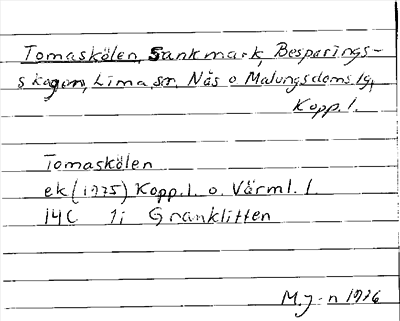 Tomaskölen, Sankmark, Besparings-
skogen, Lima sn. Nås o Malungs doms. lg,
Kopp. l.
Tomaskölen
ek (1975) Kopp. l. o. Värml. l
14C 1i Granklitten
M.J-n 1976